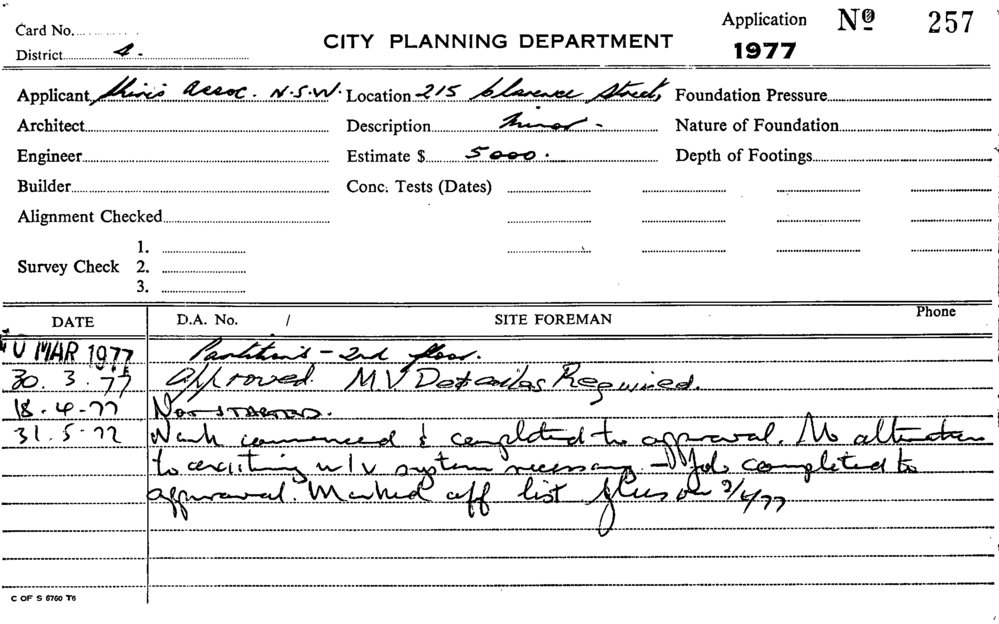 Card No.
District 4.
CITY PLANNING DEPARTMENT
Application Nº 257
1977
Applicant Assoc. N.S.W. Location 215 Clarence Street, Foundation Pressure
Architect Description Minor - Nature of Foundation
Engineer Estimate $ 5000. Depth of Footings
Builder Conc. Tests (Dates)
Alignment Checked
1.
Survey Check 2.
3.
DATE D.A. No. / SITE FOREMAN Phone
MAR 1977 Partition's - 2nd floor.
30. 3. 77 Approved. MV Details Required.
18-4-77 NOT STARTED.
31.5-77 Work commenced & completed to approval. No alteration
to existing m/v system necessary - Job completed to
approval. Marked off list
C OF S 6760 T6